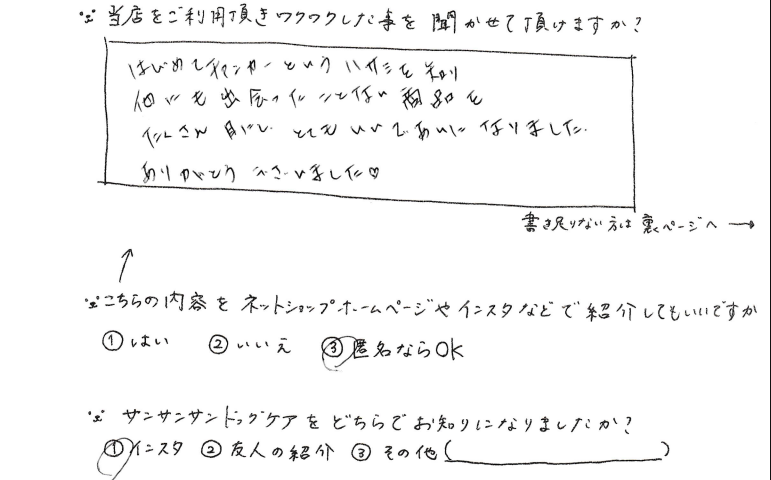 当店をご利用頂きワクワクした事を聞かせて頂けますか?
はじめて というハガミを知り
他にも出会ったことない商品を
たくさん目にし とてもいいであいになりました.
ありがとうございました♡
書き足りない方は裏ページへ →
こちらの内容をネットショップホームページやインスタなどで紹介してもいいですか
① はい ② いいえ ③ 匿名ならOK
サンサンサンドッグケアをどちらでお知りになりましたか?
① インスタ ② 友人の紹介 ③ その他( )